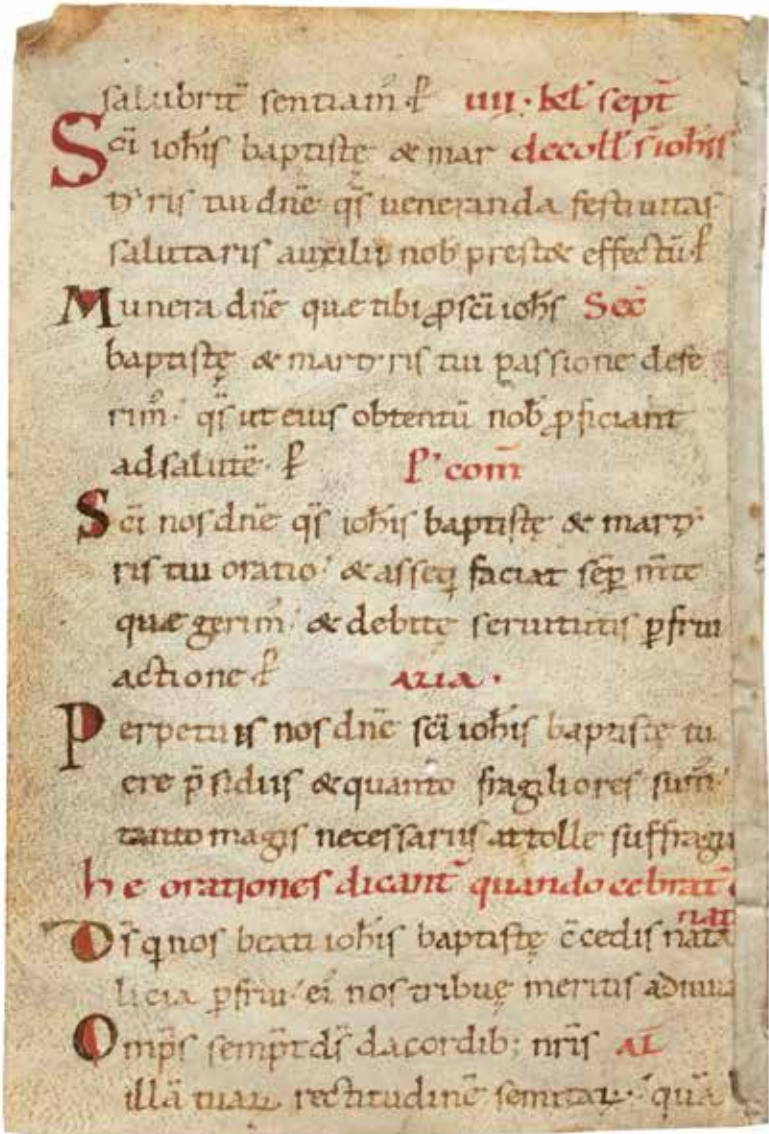 salubrit̄ sentiam᾽. ꝑ iiii · kl᾽ sept̄
Sc̄i ioh̄is baptistę & mar decoll᾽ s̄ ioh̄is
tẏris tui dn̄e qs̄ ueneranda festiuitas
salutaris auxilii nob᾽ prestæ effectū. ꝑ
Munera dn̄e quę tibi ꝓ sc̄i ioh̄is Sec̄
baptistę & martẏris tui passione defe
rim᾽. qs̄ ut eius obtentū nob᾽ ꝓficiant
ad salutē. ꝑ P᾽ com̄
Sc̄i nos dn̄e qs̄ ioh̄is baptistę & martẏ
ris tui oratio. & asseq̄ faciat sēp m̄te
quę gerim᾽. & debitę seruitutis ꝑfrui
actione ꝑ ALIA .
Perpetuis nos dn̄e sc̄i ioh̄is baptistę tu
ere p̄sidiis & quanto fragiliores sum᾽.
tanto magis necessariis attolle suffragii
he orationes dicant̄ quando cebrat̄
nat
Ds̄ q nos beati ioh̄is baptistę c̄cedis nata
licia ꝑfrui. ei᾽ nos tribue meritis adiuua
Omp̄s semp̄t ds̄ da cordib; nr̄is AL
illā tuaꝝ rectitudinē semitaꝝ. quā